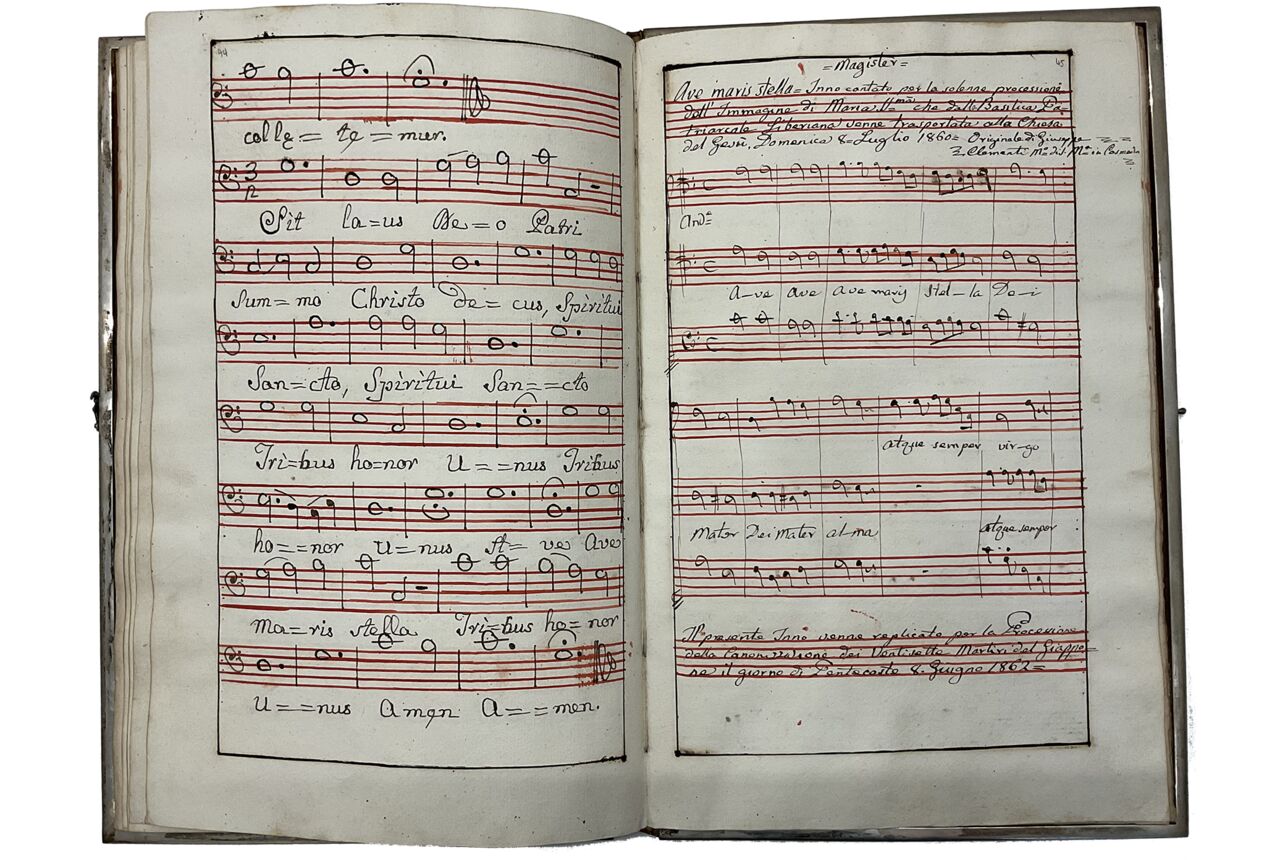 44
colle=te=mur.
3
Sit la=us De=o Patri
Sum=mo Christo de=cus, Spiritui
San=cto, Spiritui San==cto
Tri=bus ho=nor U==nus Tribus
ho==nor U=nus A=ve Ave
ma=ris stella Tri=bus ho=nor
U==nus Amen A==men.
45
=Magister=
Ave maris stella= Inno cantato per la solenne processione
dell' Immagine di Maria SS.ma che dalla Basilica Pa-
triarcale Liberiana venne trasportata alla Chiesa
del Gesù, Domenica 8= Luglio 1860= Originale di Giuseppe
Clementi M.o di S. M.a in Cosmedin
And.e
A-ve Ave Ave maris stel-la De-i
atque semper vir-go
Mater Dei Mater al-ma atque semper
Il presente Inno venne replicato per la Processione
della Canonizzazione dei Ventisette Martiri del Giappo=
ne il giorno di Pentecoste 8. Giugno 1862=